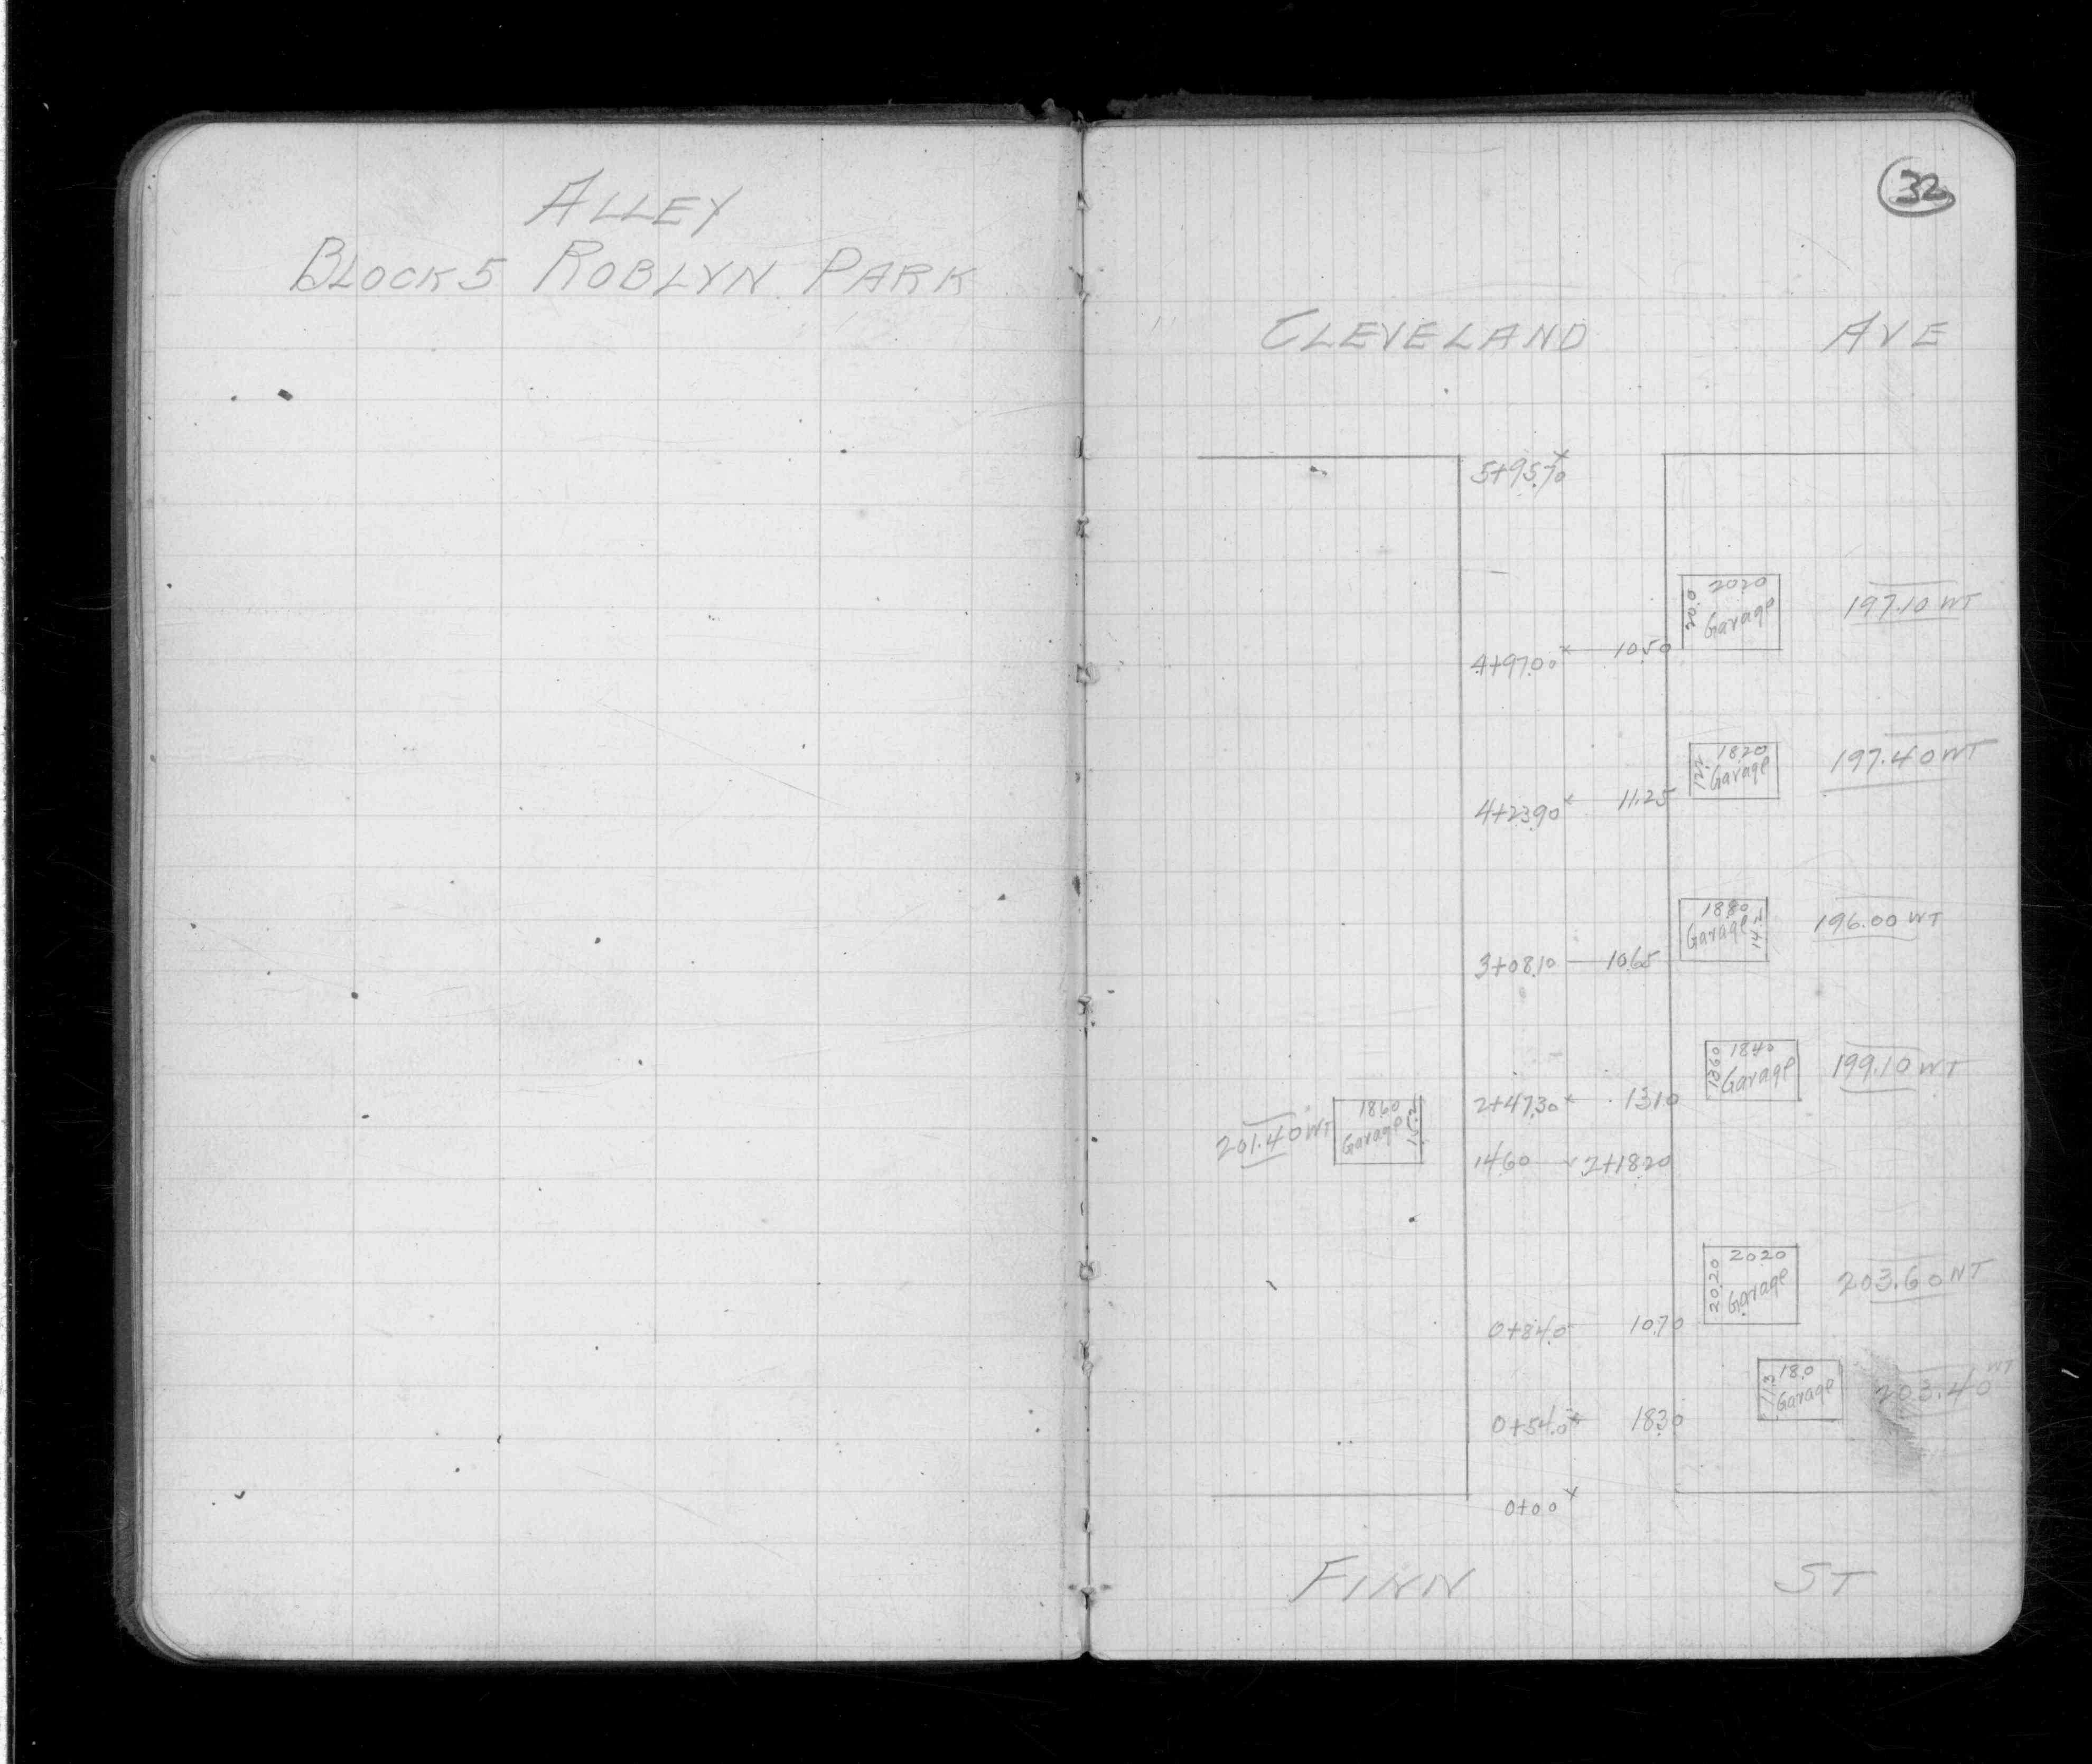 ALLEY
BLOCK 5 ROBLYN PARK
32
CLEVELAND AVE
5+95.70
20.20
20.0
Garage
197.10 WT
4+97.00 10.50
18.20
Garage
197.40 WT
4+23.90 11.25
18.80
Garage
14.2
196.00 WT
3+08.10 10.65
18.40
13.60
Garage
199.10 WT
2+47.30 13.10
18.60
Garage
201.40 WT
14.60 2+18.20
20.20
20.20
Garage
203.60 WT
0+84.0 10.70
18.0
Garage
203.40 WT
0+54.0 18.30
0+00
FINN ST